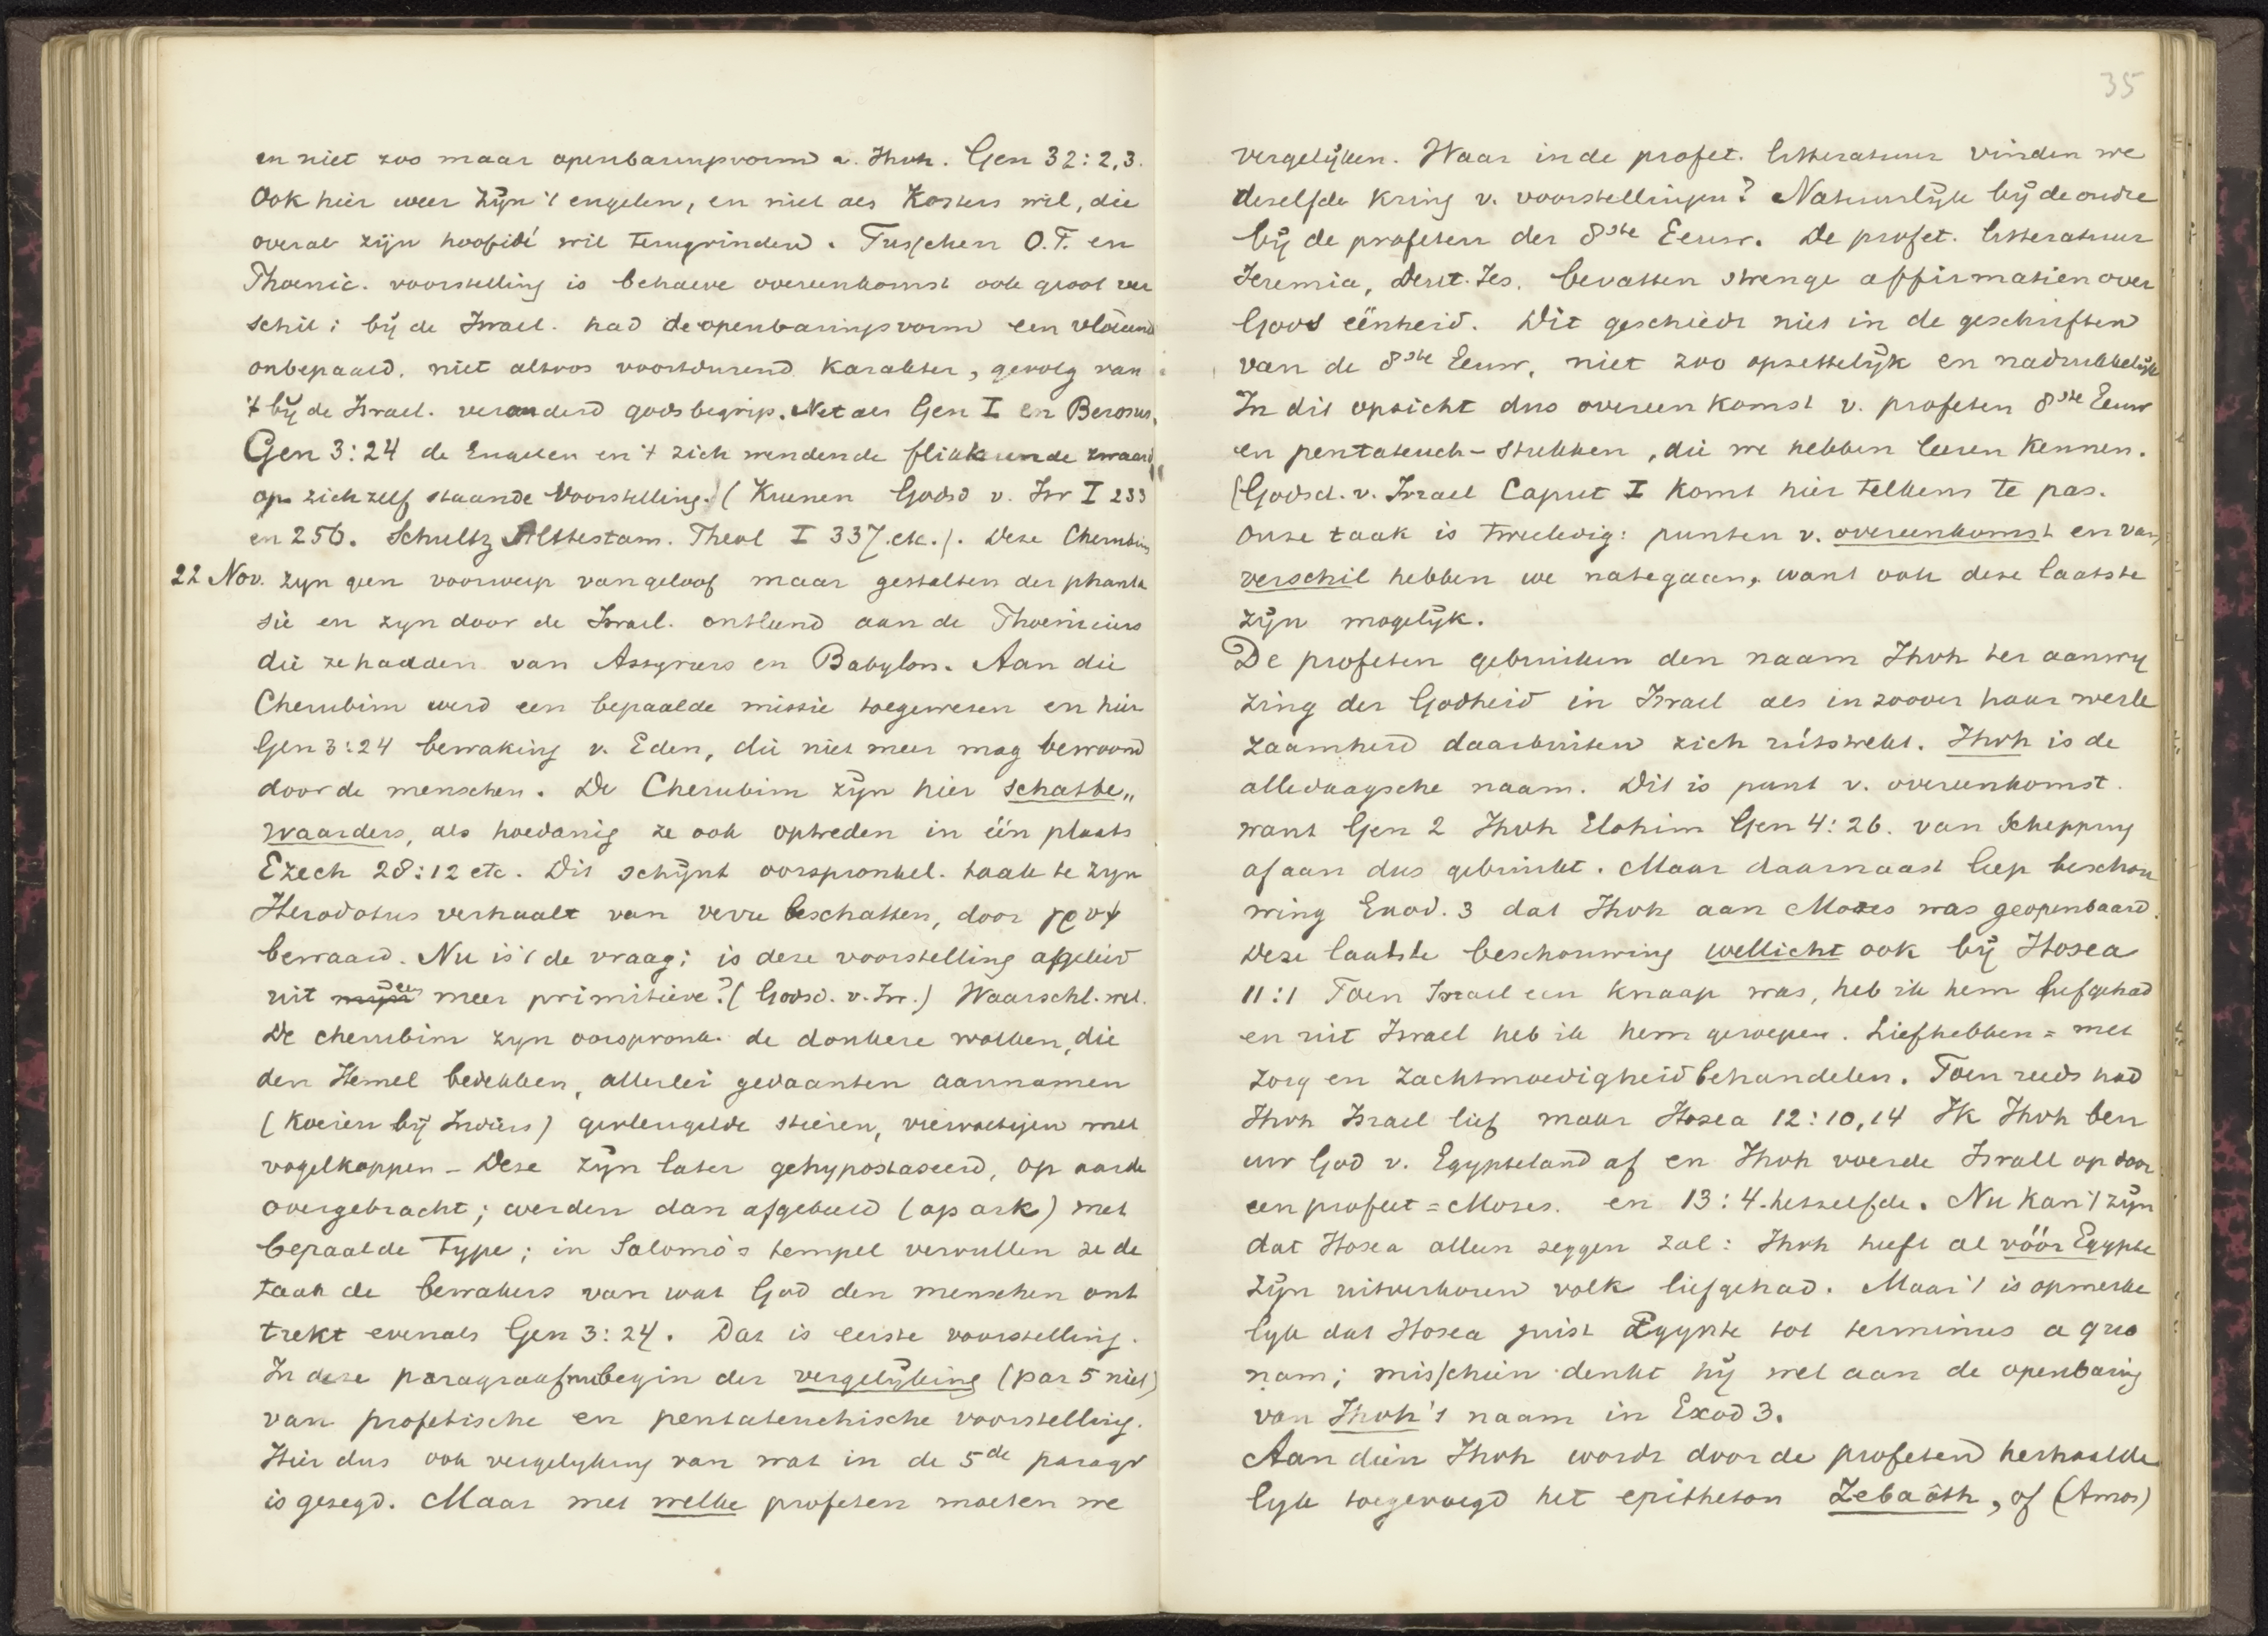 en niet zoo maar openbaringsvorm v. Jhvh. Gen 32:2,3.
Ook hier weer zijn 't engelen, en niet als Kosters wil, die
overal zijn hoofdidé wil terugvinden. Tusschen O.T. en
Phoenic. voorstelling is behalve overeenkomst ook groot ver
schil: bij de Israel. had de openbaringsvorm een vloeiend
onbepaald, niet altoos voortdurend karakter, gevolg van
't bij de Israel. veranderd godsbegrip. Net als Gen I en Berosus.
Gen 3:24 de Engelen en 't zich wendende flikkerende zwaard
op zich zelf staande voorstelling. (Kuenen Godsd v. Isr I 233
en 256. Schultz Alttestam. Theol I 337. etc.). Deze Cherubim
22 Nov. zyn geen voorwerp van geloof maar gestalten der phanta
sie en zyn door de Israel. ontleend aan de Phoeniciers
die ze hadden van Assyriers en Babylon. Aan die
Cherubim werd een bepaalde missie toegewezen en hier
Gen 3:24 bewaking v. Eden, die niet meer mag bewoond
door de menschen. De Cherubim zijn hier schatbe„
waarders, als hoedanig ze ook optreden in één plaats
Ezech 28:12 etc. Dit schijnt oorspronkel. taak te zyn
Herodotus verhaalt van verre schatten, door γρυψ
bewaard. Nu is 't de vraag: is deze voorstelling afgeleid
uit een meer primitieve? (Godsd. v. Isr.) Waarschl. wel.
De cherubim zyn oorspronk. de donkere wolken, die
den Hemel bedekken, allerlei gedaanten aannamen
(Koeien bij Indiërs) gevleugelde stieren, viervoetigen met
vogelkoppen – Deze zijn later gehypostaseerd, op aarde
overgebracht; werden dan afgebeeld (op ark) met
bepaalde type; in Salomo's tempel vervullen ze de
taak de bewakers van wat God den menschen ont
trekt evenals Gen 3:24. Dat is eerste voorstelling.
In deze paragraaf nu begin der vergelijking (par 5 niet)
van profetische en pentateuchische voorstelling.
Hier dus ook vergelyking van wat in de 5de paragr
is gezegd. Maar met welke profeten moeten we
35
vergelijken. Waar in de profet. litteratuur vinden we
deselfde kring v. voorstellingen? Natuurlijk bij de oudre
bij de profeten der 8ste Eeuw. De profet. litteratuur
Jeremia, Deut. Jes. bevatten strenge affirmatien over
Gods eënheid. Dit geschiedt niet in de geschriften
van de 8ste Eeuw, niet zoo opzettelijk en nadrukkelijk
In dit opzicht dus overeenkomst v. profeten 8ste Eeuw
en pentateuch-stukken, die we hebben leeren kennen.
(Godsd. v. Israel Caput I komt hier telkens te pas.
Onze taak is tweeledig: punten v. overeenkomst en van
verschil hebben we nategaan, want ook deze laatste
zijn mogelijk.
De profeten gebruiken den naam Jhvh ter aanwij
zing der Godheid in Israel als in zoover haar werk
zaamheid daarbuiten zich uitstrekt. Jhvh is de
alledaagsche naam. Dit is punt v. overeenkomst.
want Gen 2 Jhvh Elohim Gen 4:26. van Schepping
af aan dus gebruikt. Maar daarnaast liep beschou
wing Exod. 3 dat Jhvh aan Mozes was geopenbaard.
Deze laatste beschouwing wellicht ook bij Hosea
11:1 Toen Israel een knaap was, heb ik hem liefgehad
en uit Israel heb ik hem geroepen. Liefhebben = met
zorg en zachtmoedigheid behandelen. Toen reeds had
Jhvh Israel lief maar Hosea 12:10,14 Ik Jhvh ben
uw God v. Egypteland af en Jhvh voerde Israel op door
een profeet = Mozes. en 13:4. hetzelfde. Nu kan 't zijn
dat Hosea alleen zeggen zal: Jhvh heeft al vóór Egypte
zijn uitverkoren volk liefgehad. Maar 't is opmerke
lyk dat Hosea juist Egypte tot terminus a quo
nam; misschien denkt hij wel aan de openbaring
van Jhvh's naam in Exod 3.
Aan dien Jhvh wordt door de profeten herhaalde
lyk toegevoegd het epitheton Zebaôth, of (Amos)